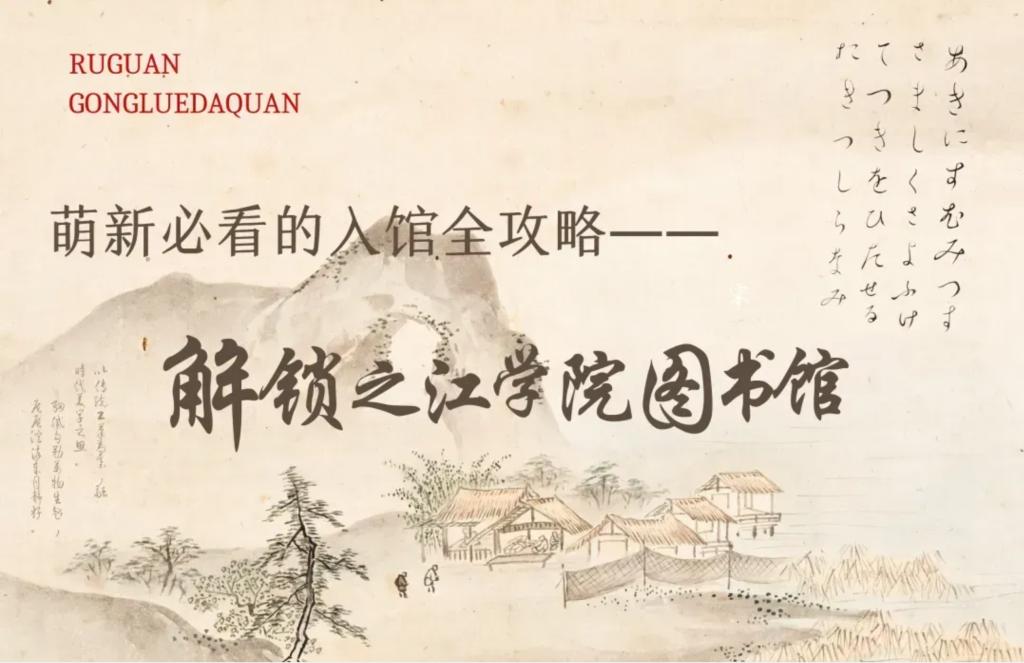 RUGUAN
GONGLUEDAQUAN
萌新必看的入馆全攻略——
解锁之江学院图书馆
あきにすむみつす
さましくさよふけ
てつきをひたせる
たきつしらなみ
时代美学之思。